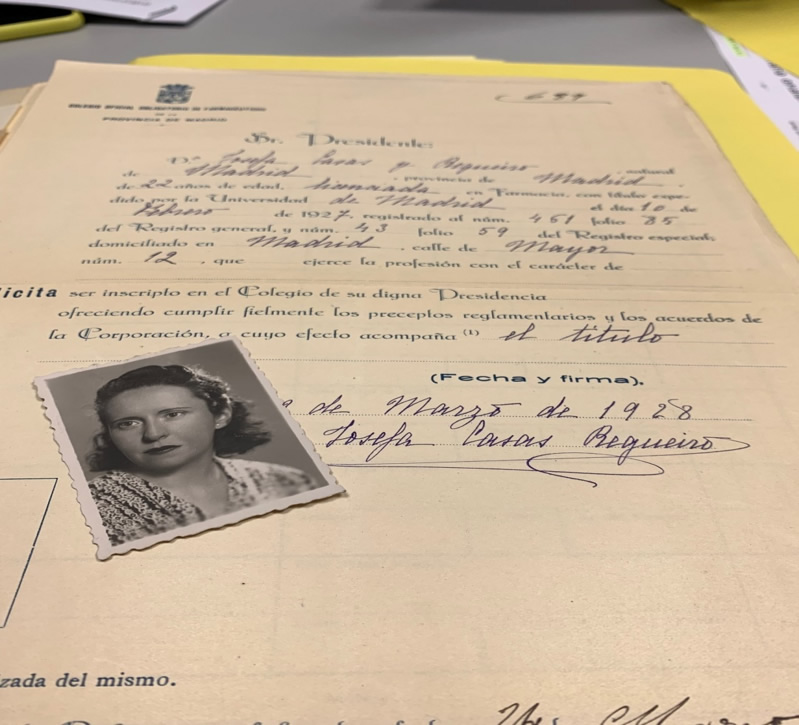 COLEGIO OFICIAL OBLIGATORIO DE FARMACÉUTICOS
DE LA
PROVINCIA DE MADRID
699
Sr. Presidente:
D.ª Josefa Casas y Regueiro, natural
de Madrid, provincia de Madrid,
de 22 años de edad, licenciada en Farmacia, con título expe-
dido por la Universidad de Madrid el día 10 de
Febrero de 1927, registrado al núm. 461 folio 85
del Registro general, y núm. 43 folio 59 del Registro especial;
domiciliado en Madrid, calle de Mayor
núm. 12, que ejerce la profesión con el carácter de
icita ser inscripto en el Colegio de su digna Presidencia
ofreciendo cumplir fielmente los preceptos reglamentarios y los acuerdos de
la Corporación, a cuyo efecto acompaña (1) el título
(Fecha y firma).
de Marzo de 1928
Josefa Casas Regueiro
zada del mismo.